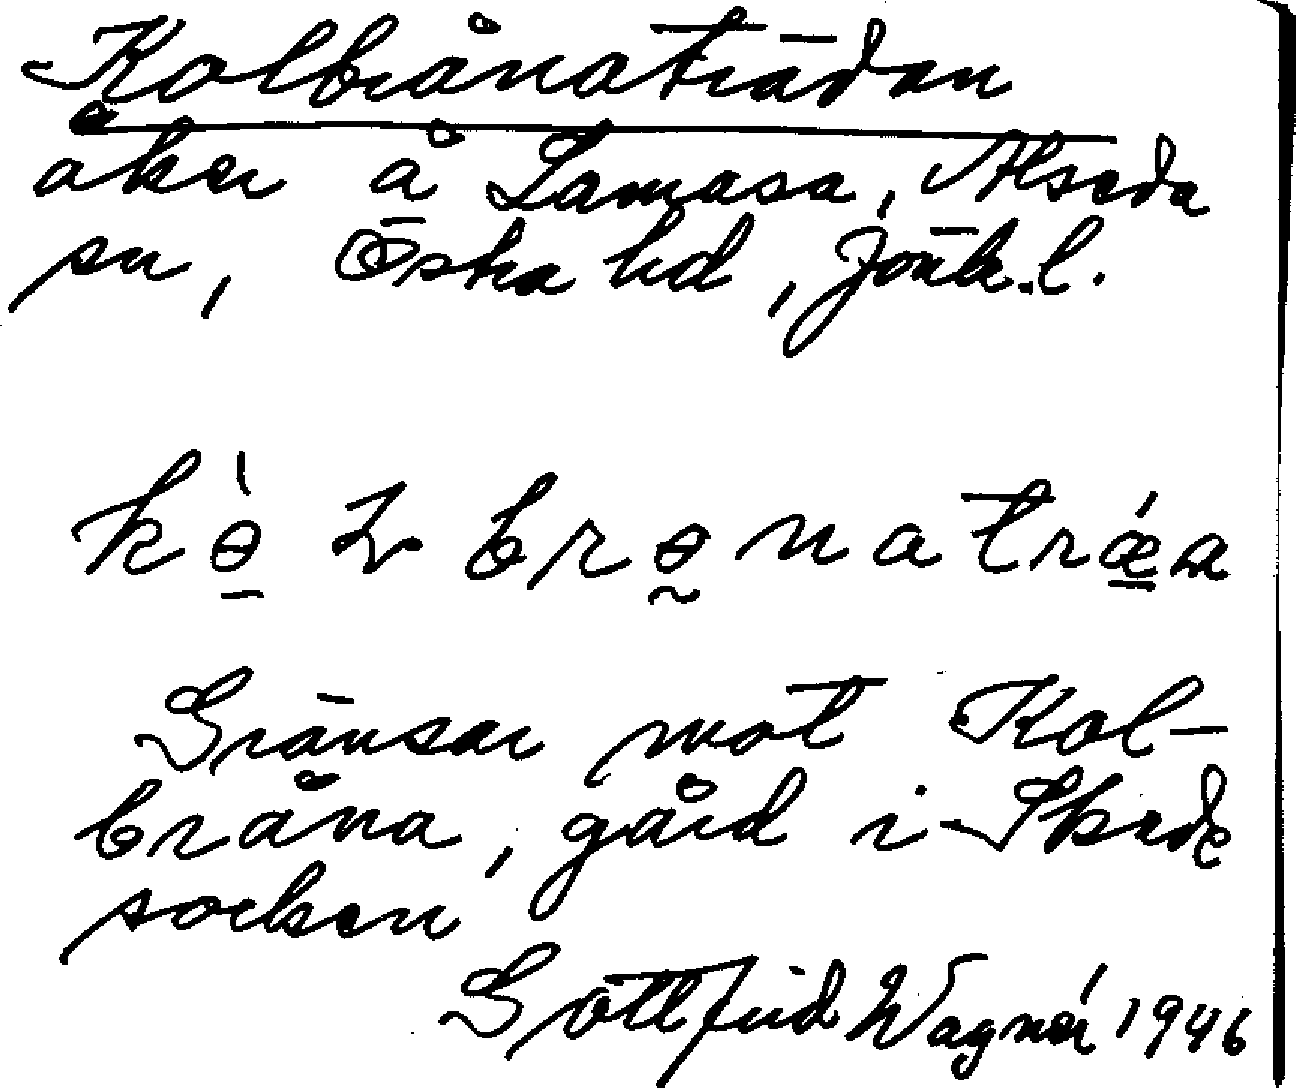 Kolbrånaträdan
åker å Lamåsa, Alseda
sn, Östra hd, Jönk.l.
kò̱lbro̰natrǽ̱a
Gränsar mot Kol-
bråna, gård i Skede
socken
Gottfrid Wagnér 1946